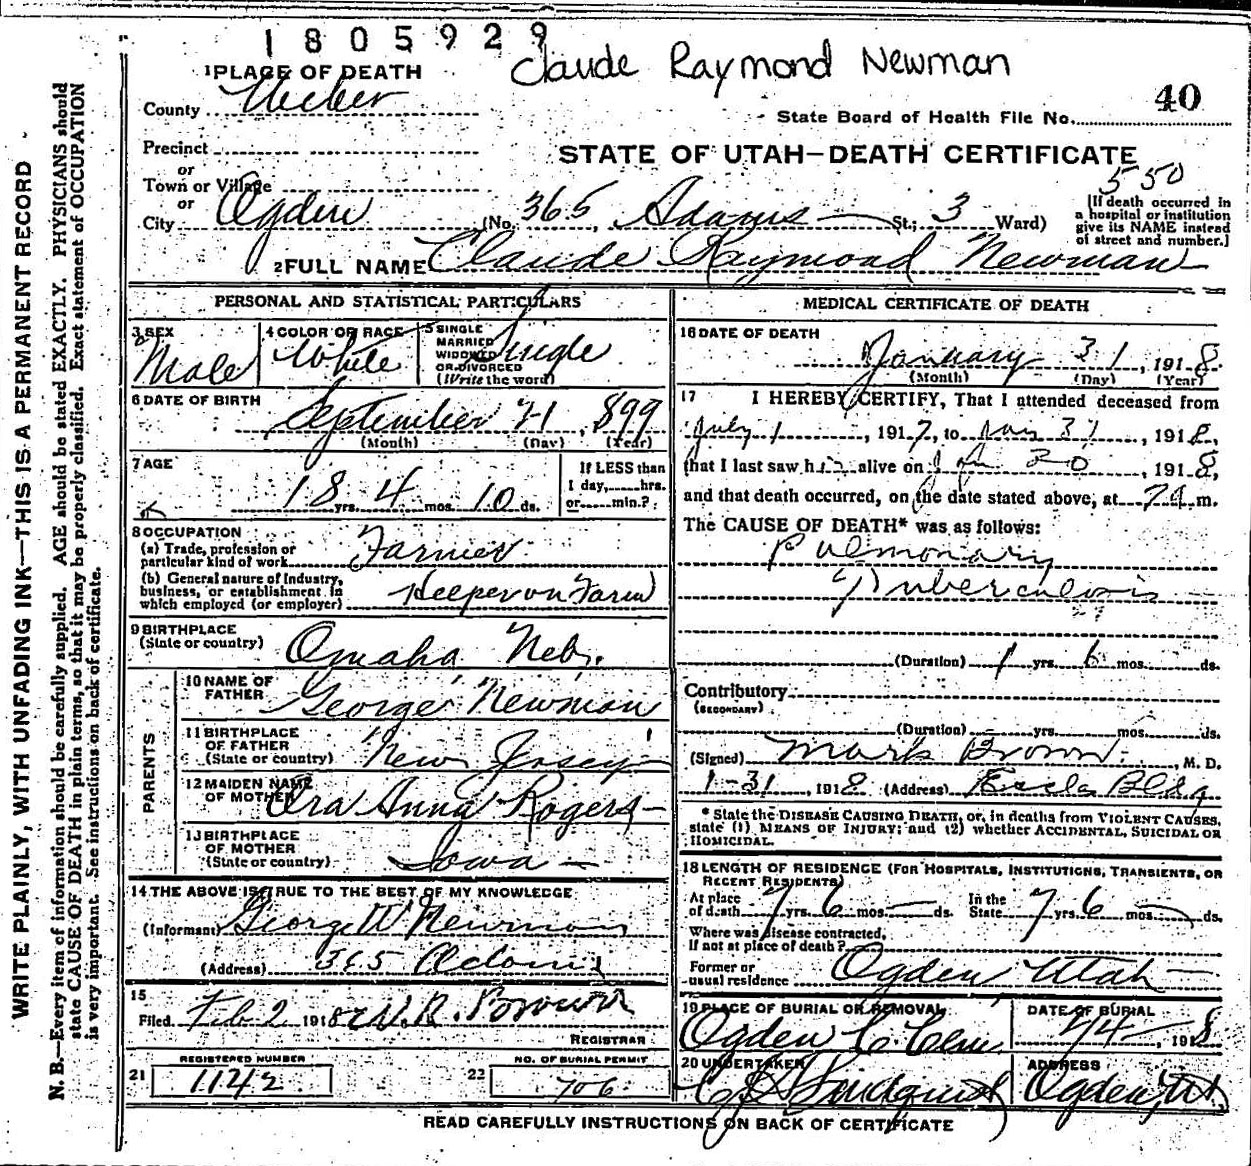 1805929
Claude Raymond Newman
1 PLACE OF DEATH
40
County Weber
State Board of Health File No.
Precinct
STATE OF UTAH—DEATH CERTIFICATE
or
550
Town or Village
or
City Ogden (No. 365, Adams St.; 3 Ward)
[If death occurred in
a hospital or institution
give its NAME instead
of street and number.]
2 FULL NAME Claude Raymond Newman
PERSONAL AND STATISTICAL PARTICULARS
3 SEX
Male
4 COLOR OR RACE
White
5 SINGLE
MARRIED
WIDOWED
OR DIVORCED
(Write the word)
Single
6 DATE OF BIRTH
September 21, 899
(Month) (Day) (Year)
7 AGE
18 yrs. 4 mos. 10 ds.
If LESS than
1 day, hrs.
or min.?
8 OCCUPATION
(a) Trade, profession or
particular kind of work Farmer
(b) General nature of Industry,
business, or establishment in
which employed (or employer) Helper on Farm
9 BIRTHPLACE
(State or country) Omaha Neb.
PARENTS
10 NAME OF
FATHER George Newman
11 BIRTHPLACE
OF FATHER
(State or country) New Jersey
12 MAIDEN NAME
OF MOTHER Ora Anna Rogers
13 BIRTHPLACE
OF MOTHER
(State or country) Iowa
14 THE ABOVE IS TRUE TO THE BEST OF MY KNOWLEDGE
(Informant) George W Newman
(Address) 365 Adams
15
Filed Feb 2 1918 W.R. Brown
REGISTRAR
REGISTERED NUMBER
21 1142
NO. OF BURIAL PERMIT
22 706
MEDICAL CERTIFICATE OF DEATH
16 DATE OF DEATH
January 31, 1918
(Month) (Day) (Year)
17 I HEREBY CERTIFY, That I attended deceased from
July 1, 1917, to Jan 31, 1918,
that I last saw him alive on Jan 30, 1918,
and that death occurred, on the date stated above, at 7 a m.
The CAUSE OF DEATH* was as follows:
Pulmonary
Tuberculosis
(Duration) 1 yrs. 6 mos. ds.
Contributory
(SECONDARY)
(Duration) yrs. mos. ds.
(Signed) Mark Brown, M. D.
1-31, 1918 (Address) Eccles Bldg
* State the DISEASE CAUSING DEATH, or, in deaths from VIOLENT CAUSES,
state (1) MEANS OF INJURY; and (2) whether ACCIDENTAL, SUICIDAL OR
HOMICIDAL.
18 LENGTH OF RESIDENCE (FOR HOSPITALS, INSTITUTIONS, TRANSIENTS, OR
RECENT RESIDENTS)
At place
of death 7 yrs. 6 mos. ds.
In the
State 7 yrs. 6 mos. ds.
Where was disease contracted,
If not at place of death?
Former or
usual residence Ogden Utah
19 PLACE OF BURIAL OR REMOVAL
Ogden C. Cem.
DATE OF BURIAL
2/4, 1918
20 UNDERTAKER
Lindquist
ADDRESS
Ogden, Ut.
READ CAREFULLY INSTRUCTIONS ON BACK OF CERTIFICATE
WRITE PLAINLY, WITH UNFADING INK—THIS IS A PERMANENT RECORD
N. B.—Every item of information should be carefully supplied. AGE should be stated EXACTLY. PHYSICIANS should
state CAUSE OF DEATH in plain terms, so that it may be properly classified. Exact statement of OCCUPATION
is very important. See instructions on back of certificate.